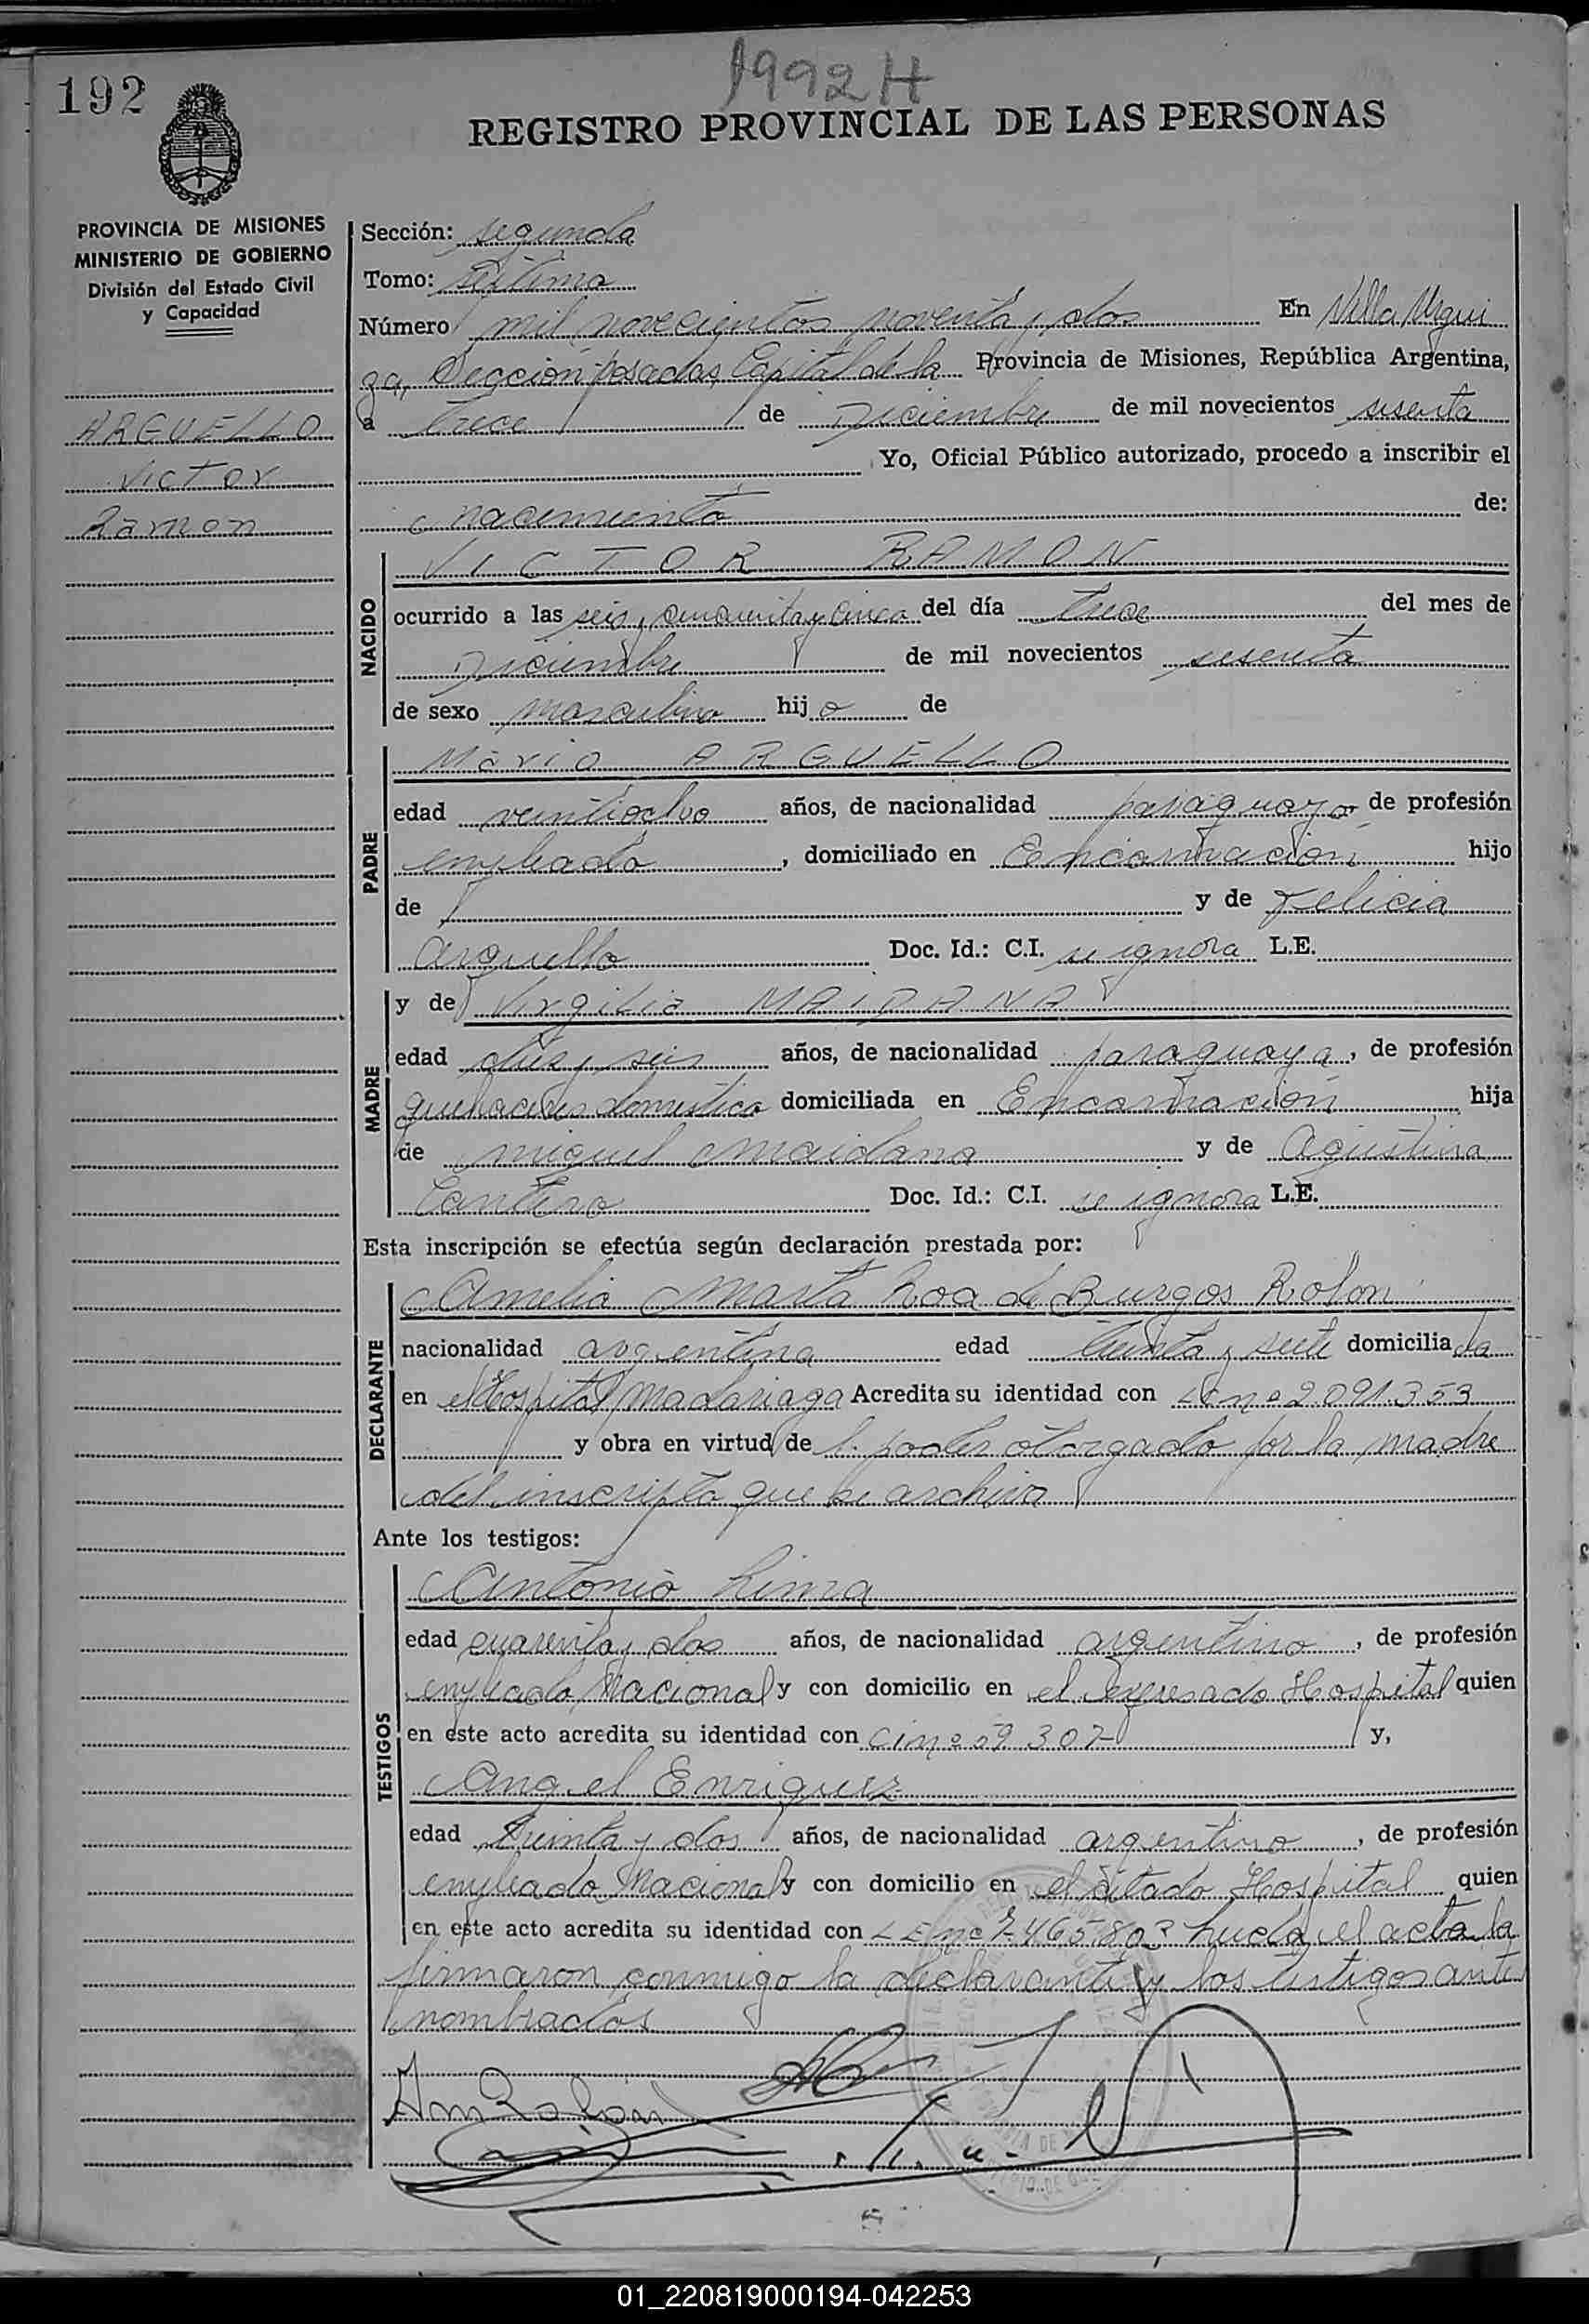 192
1992 H
REGISTRO PROVINCIAL DE LAS PERSONAS
PROVINCIA DE MISIONES
MINISTERIO DE GOBIERNO
División del Estado Civil
y Capacidad
ARGUELLO
Victor
Ramon
Sección: segunda
Tomo: Septimo
Número mil novecientos noventa y dos En Villa Urqui
za, Sección posadas, Capital de la Provincia de Misiones, República Argentina,
a trece de Diciembre de mil novecientos sesenta
Yo, Oficial Público autorizado, procedo a inscribir el
nacimiento de:
NACIDO
VICTOR RAMON
ocurrido a las seis, cincuenta y cinco del día trece del mes de
Diciembre de mil novecientos sesenta
de sexo masculino hijo de
PADRE
Mario ARGUELLO
edad veintiocho años, de nacionalidad paraguayo de profesión
empleado, domiciliado en Encarnación hijo
de y de Felicia
Arguello Doc. Id.: C.I. se ignora L.E.
MADRE
y de Virgilia MAIDANA
edad dies y seis años, de nacionalidad paraguaya, de profesión
quehaceres domestico domiciliada en Encarnación hija
de miguel maidana y de Agustina
Cantero Doc. Id.: C.I. se ignora L.E.
Esta inscripción se efectúa según declaración prestada por:
DECLARANTE
Amelia Marta Roa de Burgos Rolon
nacionalidad argentina edad treinta y siete domiciliada
en el Hospital Madariaga Acredita su identidad con LC nº 2.091.353
y obra en virtud de poder otorgado por la madre
del inscripto que se archiva
Ante los testigos:
TESTIGOS
Antonio Lima
edad cuarenta y dos años, de nacionalidad argentino, de profesión
empleado Nacional y con domicilio en el expresado Hospital quien
en este acto acredita su identidad con CI nº 59.307 y,
Angel Enriquez
edad treinta y dos años, de nacionalidad argentino, de profesión
empleado Nacional y con domicilio en el citado Hospital quien
en este acto acredita su identidad con LE nº 7.465.803 Lueda el acta la
firmaron conmigo la declarante y los testigos ante
nombrados
Am Rolon
01_220819000194-042253